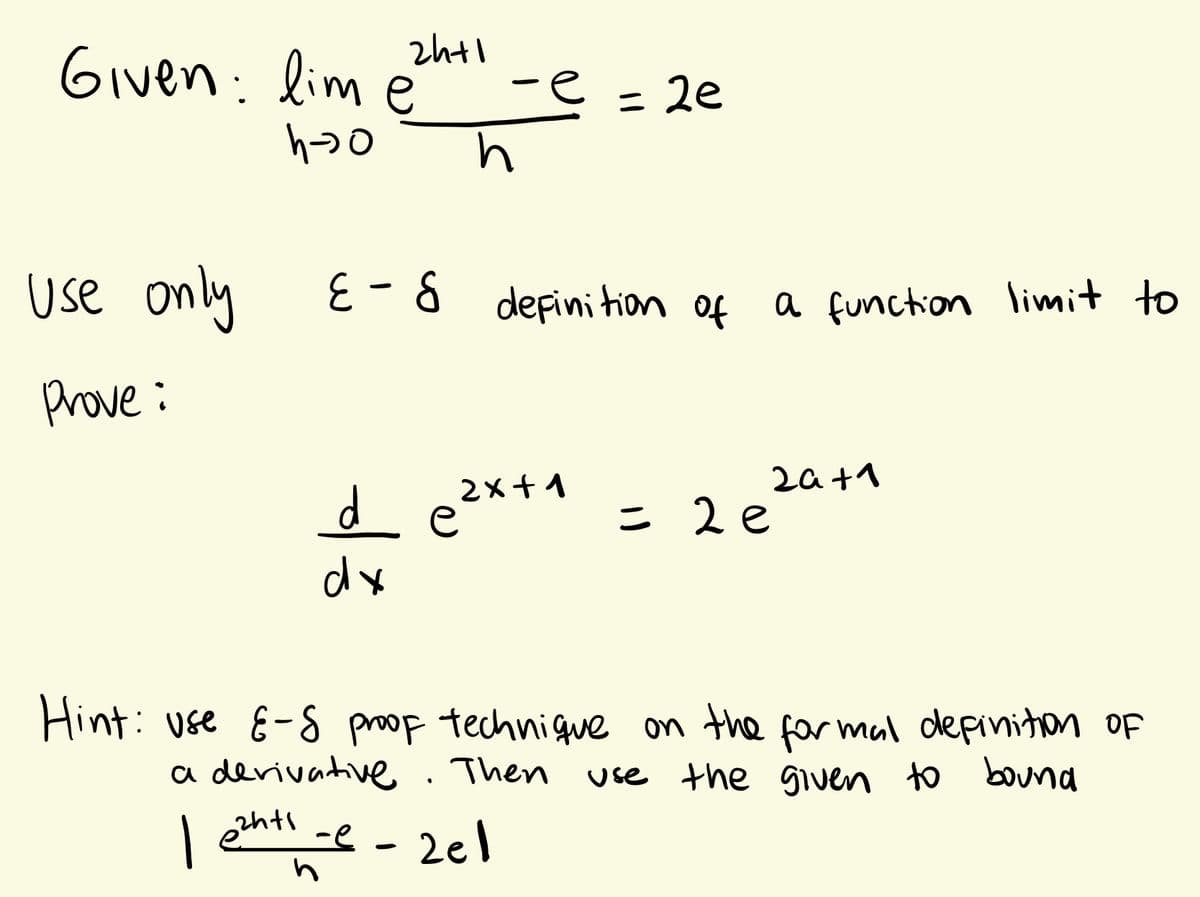 Given: lim e^{2h+1} - e = 2e
h→0 h
Use only ε-δ definition of a function limit to
Prove:
d e^{2x+1} = 2e^{2a+1}
dx
Hint: use ε-δ proof technique on the formal definition of
a derivative. Then use the given to bound
| e^{2h+1} - e - 2e |
h